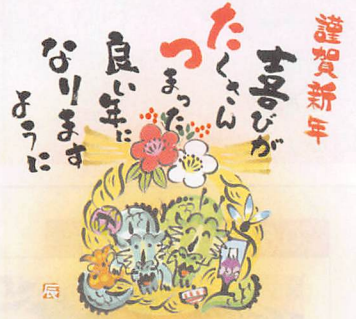 謹賀新年
喜びが
たくさん
つまった
良い年に
なります
ように
辰